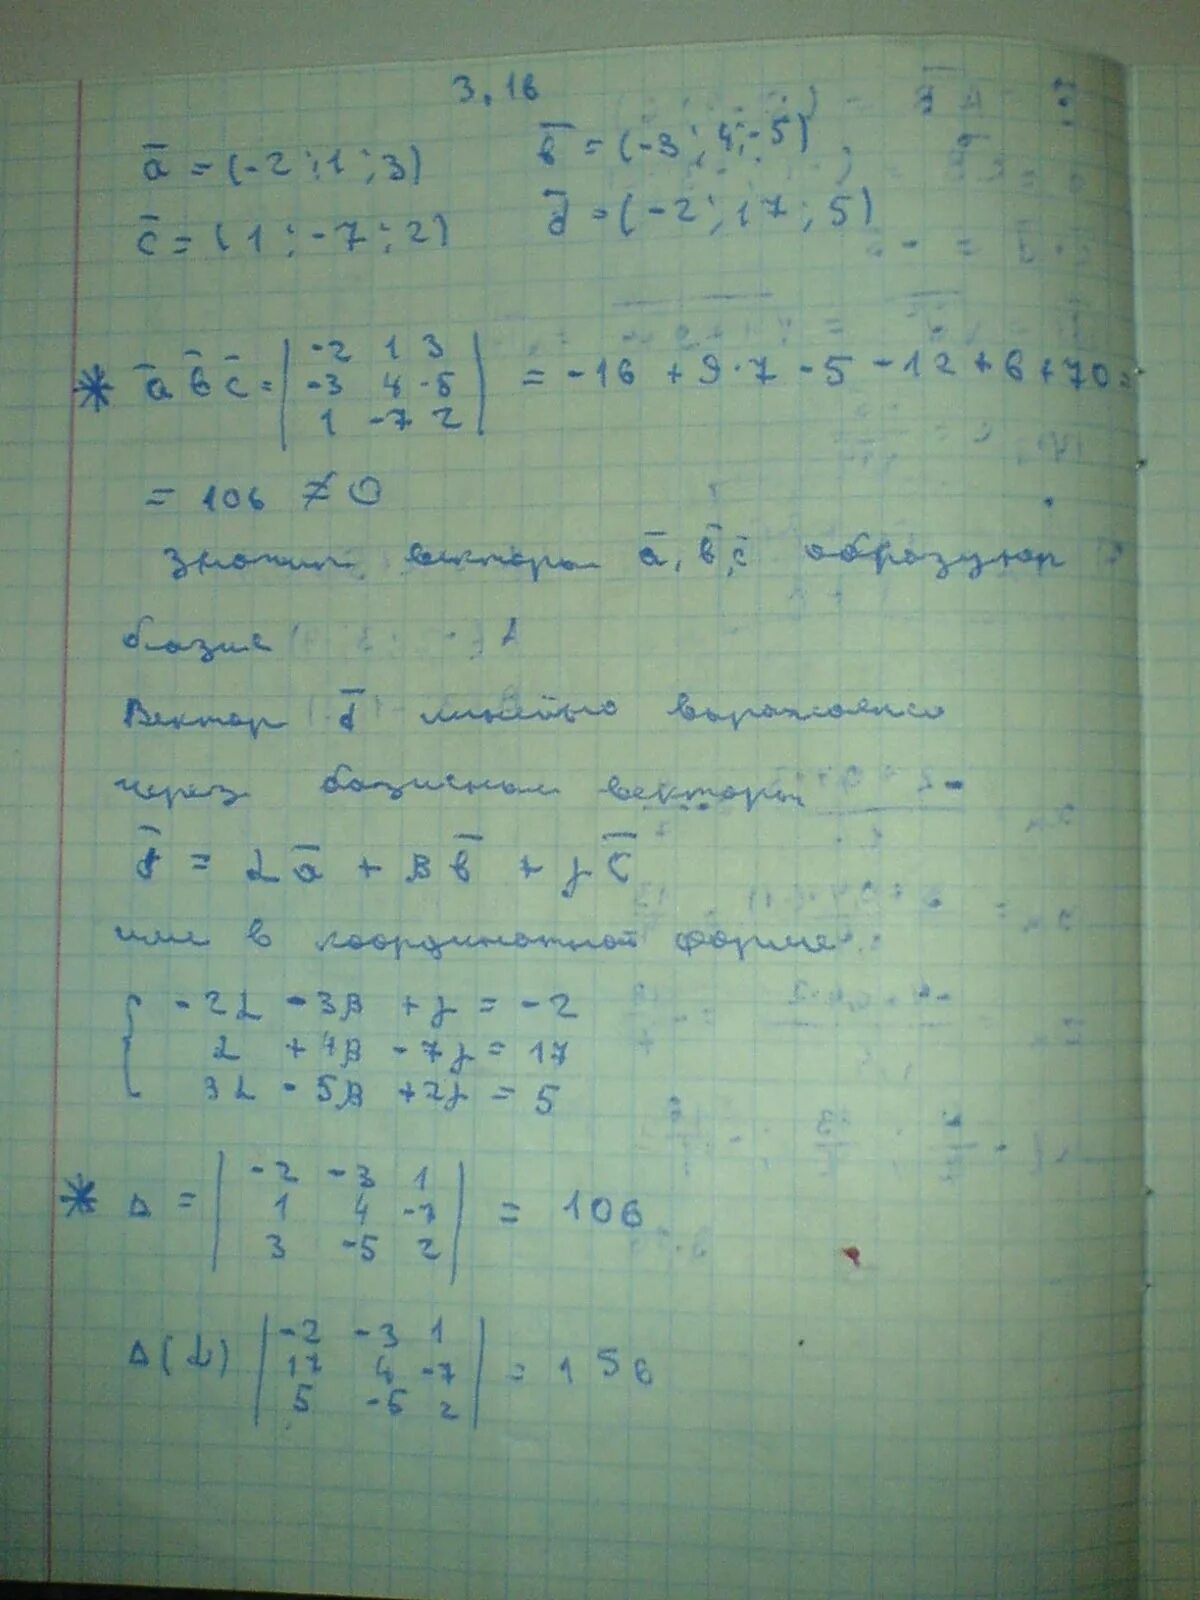 3.16
a̅ = (-2; 1; 3) b̅ = (-3; 4; -5)
c̅ = (1; -7; 2) d̅ = (-2; 17; 5)
* a̅ b̅ c̅ = | -2 1 3 | = -16 + 9·7 - 5 - 12 + 6 + 70 =
| -3 4 -5 |
| 1 -7 2 |
= 106 ≠ 0
Значит, векторы a̅, b̅, c̅ образуют
базис
Вектор d̅ линейно выражается
через базисные векторы
d̅ = α a̅ + β b̅ + γ c̅
или в координатной форме
{ -2α - 3β + γ = -2
α + 4β - 7γ = 17
3α - 5β + 2γ = 5
* Δ = | -2 -3 1 | = 106
| 1 4 -7 |
| 3 -5 2 |
Δ(α) | -2 -3 1 | = 156
| 17 4 -7 |
| 5 -5 2 |